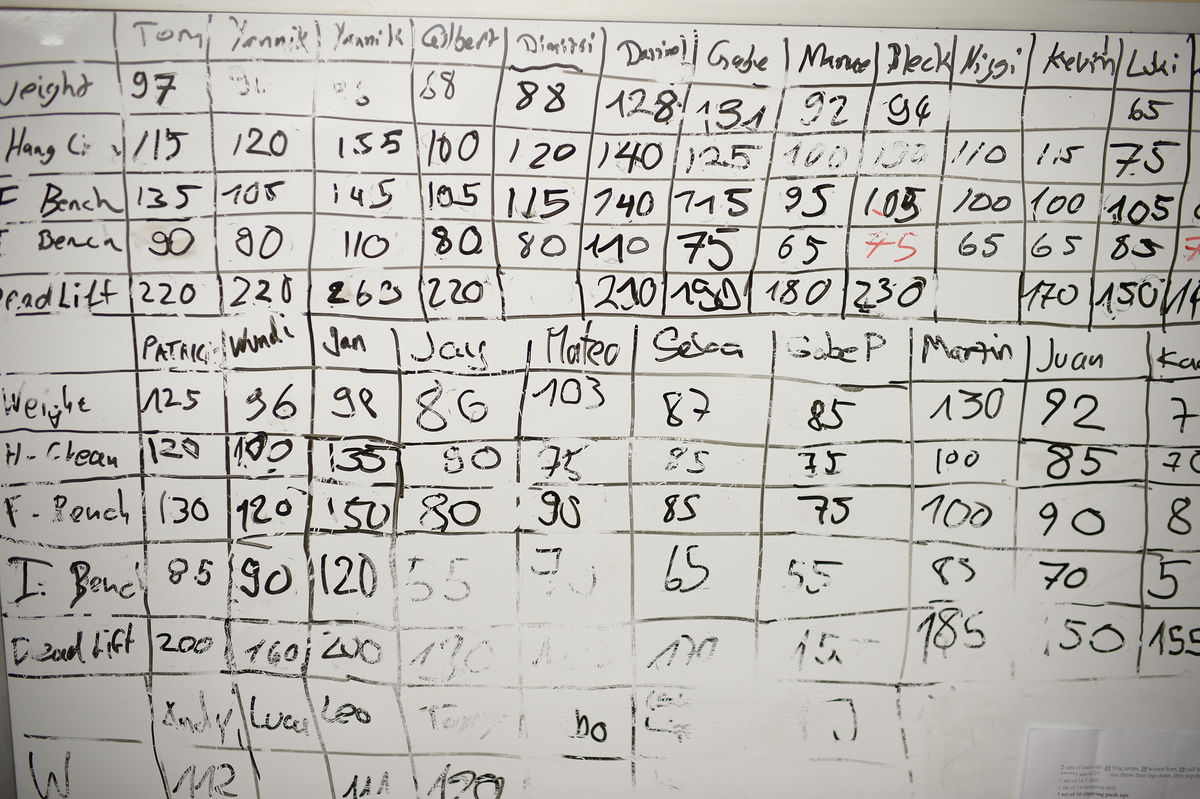 Tom Yannik Yannik Gilbert Dimitri Gabe Bleck Kevin Luki
Weight 97 68 88 128 131 92 94 65
Hang 115 120 135 100 120 140 125 100 130 110 115 75
F Bench 135 105 145 105 115 140 115 95 105 100 100 105
I Bench 90 90 110 80 80 110 75 65 75 65 65 85
Dead Lift 220 220 263 220 210 190 180 230 170 150
Patric Wundi Jan Jay Mateo Gabe P Martin Juan
Weight 125 96 98 86 103 87 85 130 92
H-Clean 120 100 135 90 75 85 75 100 85
F-Bench 130 120 150 80 90 85 75 100 90
I. Benc 85 90 120 55 65 55 85 70
Dead Lift 200 160 200 170 185 155
Andy Leo Do J
W 112 111 120
2 sets of